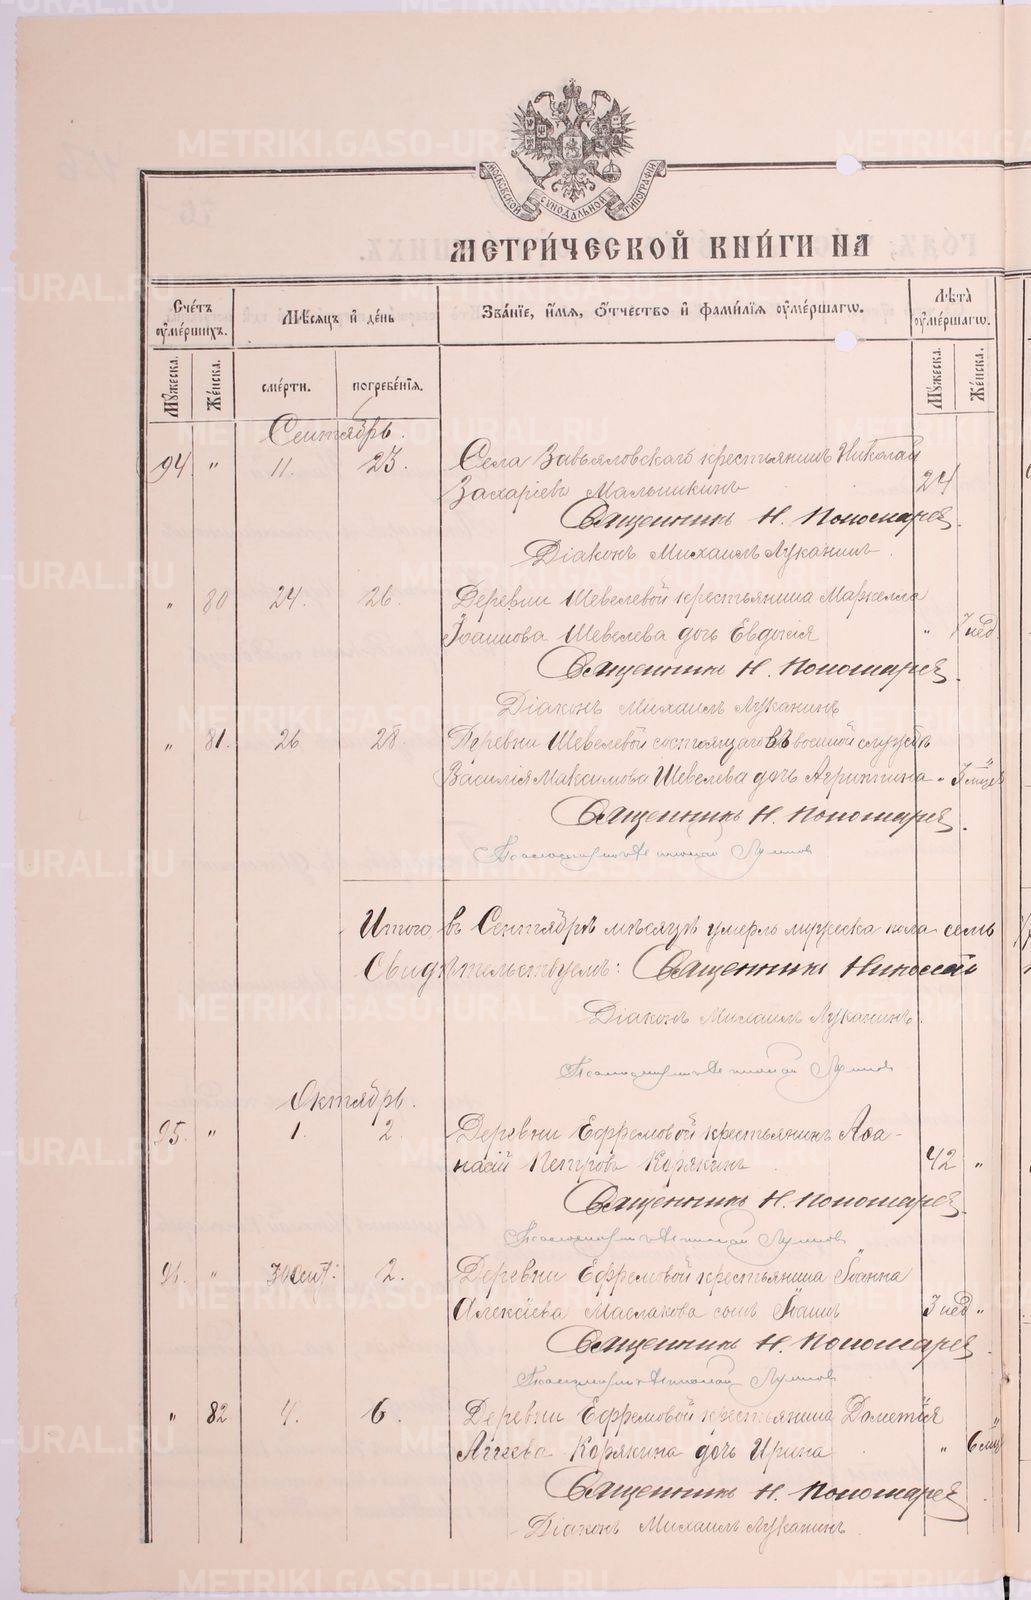 МОСКОВСКОЙ СѴНОДАЛЬНОЙ ТИПОГРАФІИ
МЕТРИ́ЧЕСКОЙ КНИ́ГИ НА
Сче́тъ ᲂу҆ме́ршихъ.
Мѣ́сяцъ и҆ де́нь
Зва́нїе, и҆́мѧ, ѻ҆́тчество и҆ фами́лїѧ ᲂу҆ме́ршагѡ.
Лѣ́та ᲂу҆ме́ршагѡ.
Мꙋ́жеска. Же́нска. сме́рти. погребе́нїѧ. Мꙋ́жеска. Же́нска.
Сентябрь.
94 " 11. 23. Села Завьяловскаго крестьянинъ Николай
Захаріевъ Мальшикинъ 24
Священникъ Н. Пономарев.
Діаконъ Михаилъ Луканинъ.
" 80 24. 26. Деревни Шевелевой крестьянина Маркелла
Іоаннова Шевелева дочь Евдокія " 7 нед.
Священникъ Н. Пономарев.
Діаконъ Михаилъ Луканинъ
" 81. 26 28 Деревни Шевелевой состоящаго въ военной службѣ
Василія Максимова Шевелева дочь Агриппина " 3 мцев
Священникъ Н. Пономарев.
Псаломщикъ Николай
Итого въ Сентябрѣ мѣсяцѣ умерло мужеска пола семь
Свидѣтельствуемъ: Священникъ Николай
Діаконъ Михаилъ Луканинъ.
Псаломщикъ Николай
Октябрь.
95. " 1. 2. Деревни Ефремовой крестьянинъ Аѳа-
насій Петровъ Корякинъ 42 "
Священникъ Н. Пономарев.
Псаломщикъ Николай
96. " 30 Сент: 2. Деревни Ефремовой крестьянина Іоанна
Алексіева Маслакова сынъ Іоаннъ 3 нед "
Священникъ Н. Пономарев.
Псаломщикъ Николай
" 82 4. 6. Деревни Ефремовой крестьянина Дометія
Аггеева Корякина дочь Ирина " 6 мцъ
Священникъ Н. Пономарев.
Діаконъ Михаилъ Луканинъ.
METRIKI.GASO-URAL.RU